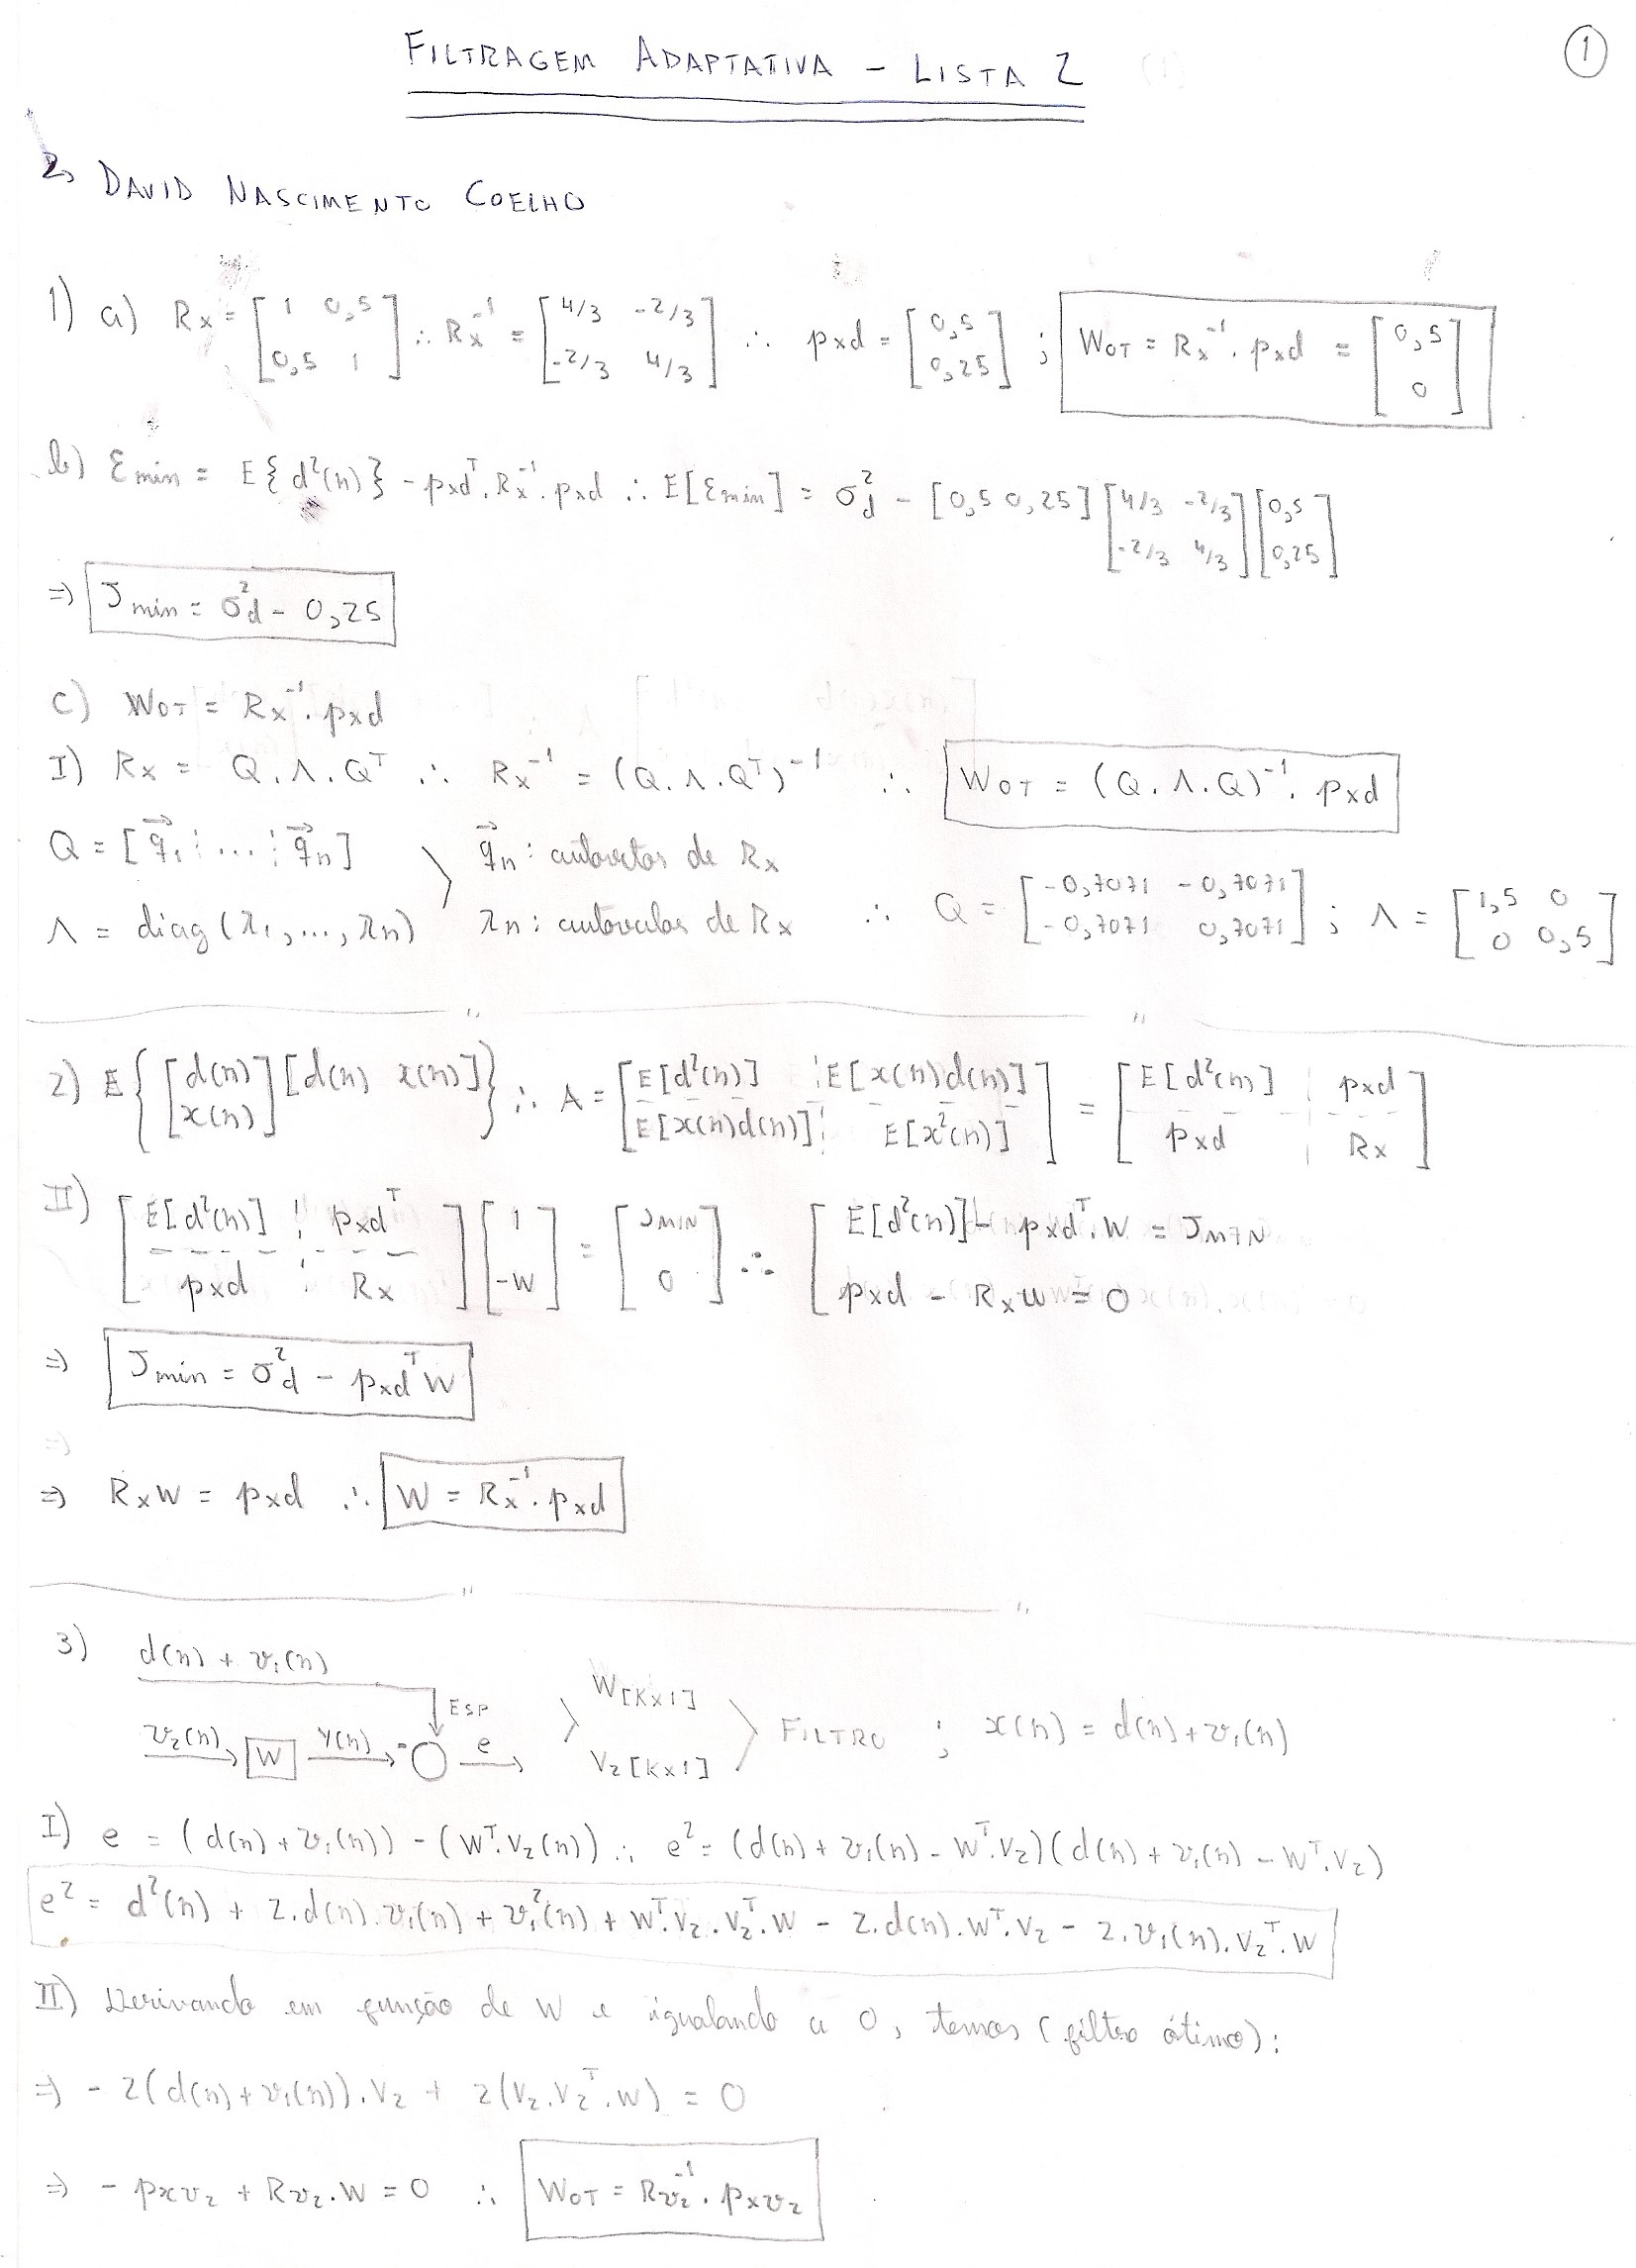 FILTRAGEM ADAPTATIVA - LISTA 2
1
DAVID NASCIMENTO COELHO
1) a) Rx = [1 0,5; 0,5 1] ∴ Rx⁻¹ = [4/3 -2/3; -2/3 4/3] ∴ pxd = [0,5; 0,25] ; WOT = Rx⁻¹. pxd = [0,5; 0]
b) Ɛmin = E{d²(n)} - pxdᵀ. Rx⁻¹. pxd ∴ E[Ɛmin] = σ²d - [0,5 0,25] [4/3 -2/3; -2/3 4/3] [0,5; 0,25]
=> Jmin = σ²d - 0,25
C) WOT = Rx⁻¹. pxd
I) Rx = Q.Λ.Qᵀ ∴ Rx⁻¹ = (Q.Λ.Qᵀ)⁻¹ ∴ WOT = (Q.Λ.Q)⁻¹. pxd
Q = [q⃗₁ ⋮ ... ⋮ q⃗n] q⃗n: autovetor de Rx
Λ = diag(λ₁,...,λn) λn: autovalor de Rx ∴ Q = [-0,7071 -0,7071; -0,7071 0,7071] ; Λ = [1,5 0; 0 0,5]
2) E{[d(n); x(n)] [d(n) x(n)]} ∴ A = [E[d²(n)] E[x(n)d(n)]; E[x(n)d(n)] E[x²(n)]] = [E[d²(n)] pxd; pxd Rx]
II) [E[d²(n)] pxdᵀ; pxd Rx] [1; -W] = [JMIN; 0] ∴ [E[d²(n)] - pxdᵀ.W = JMIN; pxd - RxW = 0
=> Jmin = σ²d - pxdᵀW
=> RxW = pxd ∴ W = Rx⁻¹. pxd
3) d(n) + v₁(n)
ESP
v₂(n) W y(n) - e
W[Kx1]
V₂[Kx1]
FILTRO ; x(n) = d(n) + v₁(n)
I) e = (d(n) + v₁(n)) - (Wᵀ.V₂(n)) ∴ e² = (d(n) + v₁(n) - Wᵀ.V₂)(d(n) + v₁(n) - Wᵀ.V₂)
e² = d²(n) + 2.d(n).v₁(n) + v₁²(n) + Wᵀ.V₂.V₂ᵀ.W - 2.d(n).Wᵀ.V₂ - 2.v₁(n).V₂ᵀ.W
II) Derivando em função de W e igualando a 0, temos (filtro ótimo):
=> - 2(d(n) + v₁(n)).V₂ + 2(V₂.V₂ᵀ.W) = 0
=> - pxv₂ + Rv₂.W = 0 ∴ WOT = Rv₂⁻¹. pxv₂